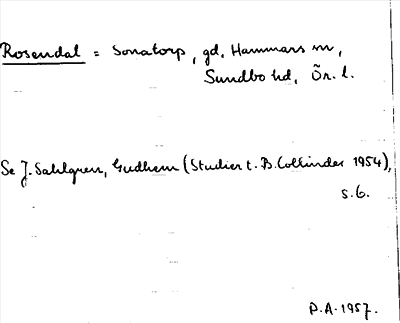 Rosendal = Sonatorp, gd, Hammars sn,
Sundbo hd, Ör. l.
Se J. Sahlgren, Gudhem (Studier t. B. Collinder 1954),
s. 6.
P.A. 1957.